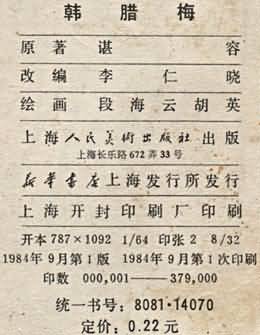 韩腊梅
原著 谌容
改编 李仁晓
绘画 段海云 胡英
上海人民美術出版社 出版
上海长乐路672弄33号
新华书店上海发行所发行
上海开封印刷厂印刷
开本 787×1092 1/64 印张 2 8/32
1984年9月第1版 1984年9月第1次印刷
印数 000,001——379,000
统一书号:8081·14070
定价:0.22元